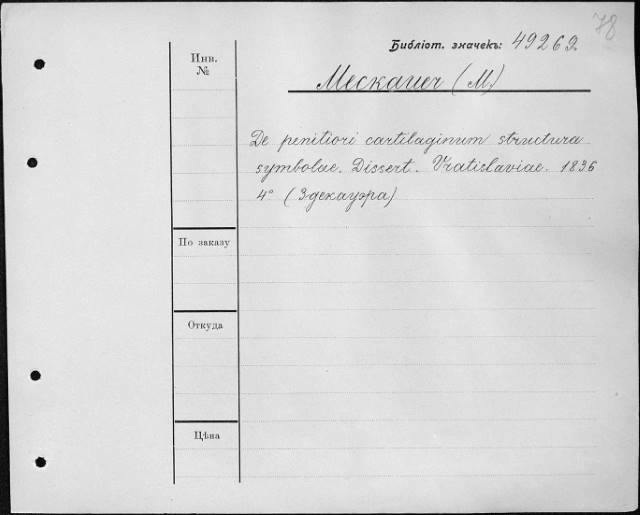 78
Библіот. значекъ: 49269.
Инв.
№
Meckauer (M.)
De penitiori cartilaginum structura
symbolae. Dissert. Vratislaviae. 1836
4° (Здекауэра)
По заказу
Откуда
Цѣна